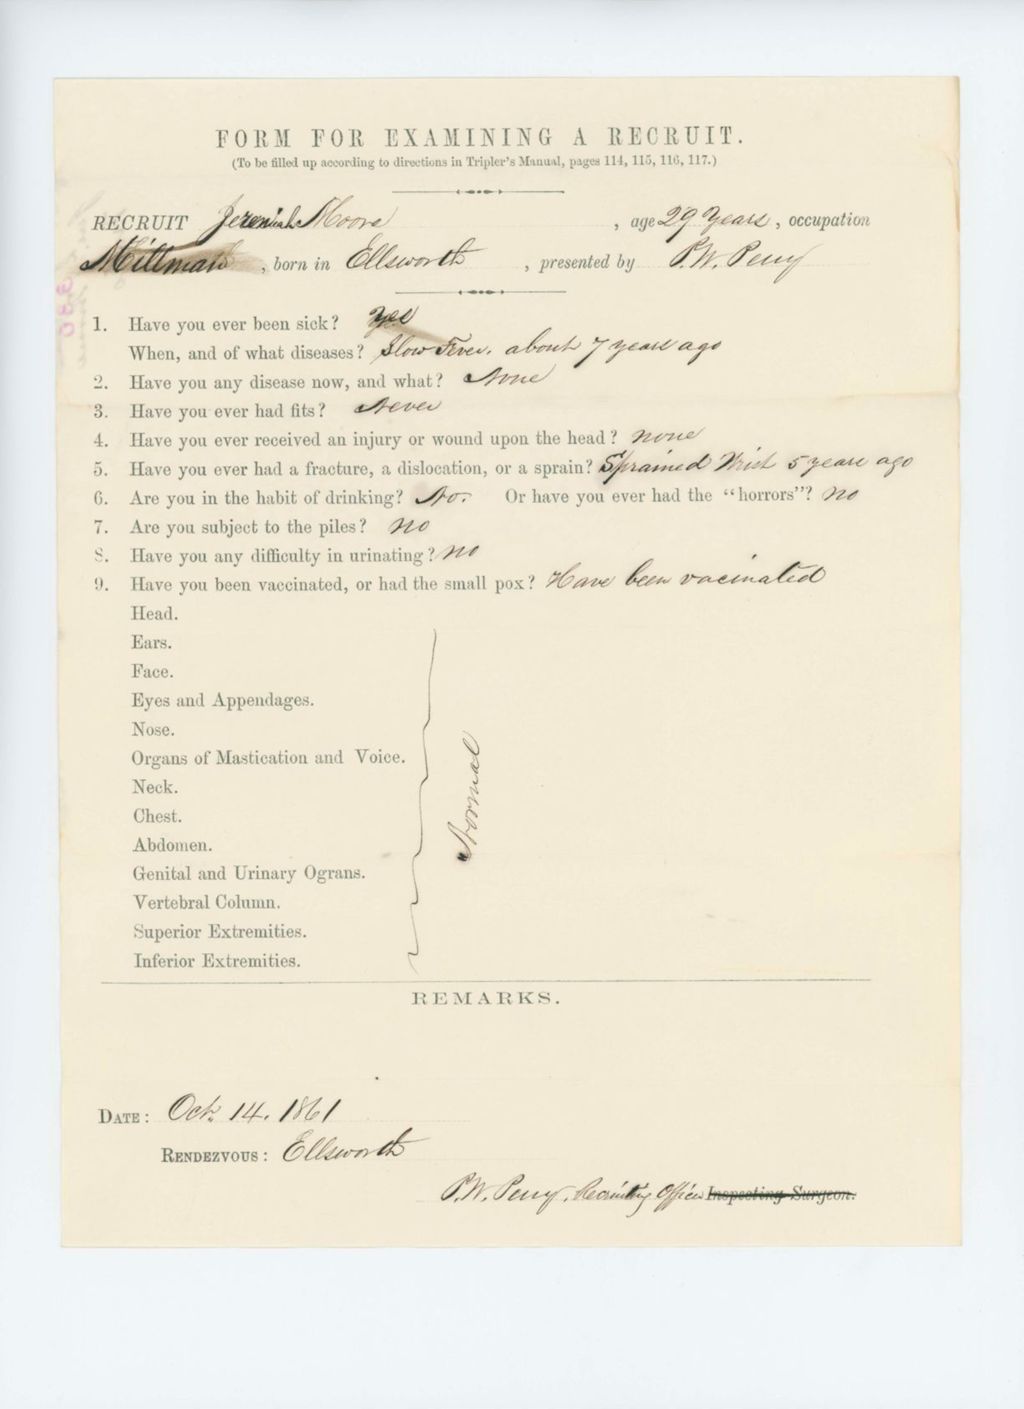 FORM FOR EXAMINING A RECRUIT.
(To be filled up according to directions in Tripler's Manual, pages 114, 115, 116, 117.)
RECRUIT Jeremiah Moore, age 29 Years, occupation
Millman, born in Ellsworth, presented by P.W. Perry
1. Have you ever been sick? Yes
When, and of what diseases? Slow Fever. about 7 years ago
2. Have you any disease now, and what? None
3. Have you ever had fits? Never
4. Have you ever received an injury or wound upon the head? none
5. Have you ever had a fracture, a dislocation, or a sprain? Sprained Wrist 5 years ago
6. Are you in the habit of drinking? No. Or have you ever had the "horrors"? no
7. Are you subject to the piles? no
8. Have you any difficulty in urinating? no
9. Have you been vaccinated, or had the small pox? Have been vacinated
Head.
Ears.
Face.
Eyes and Appendages.
Nose.
Organs of Mastication and Voice.
Neck.
Chest.
Abdomen.
Genital and Urinary Ograns.
Vertebral Column.
Superior Extremities.
Inferior Extremities.
Normal
REMARKS.
DATE: Oct. 14. 1861
RENDEZVOUS: Ellsworth
P.W. Perry, Recruiting Officer Inspecting Surgeon.